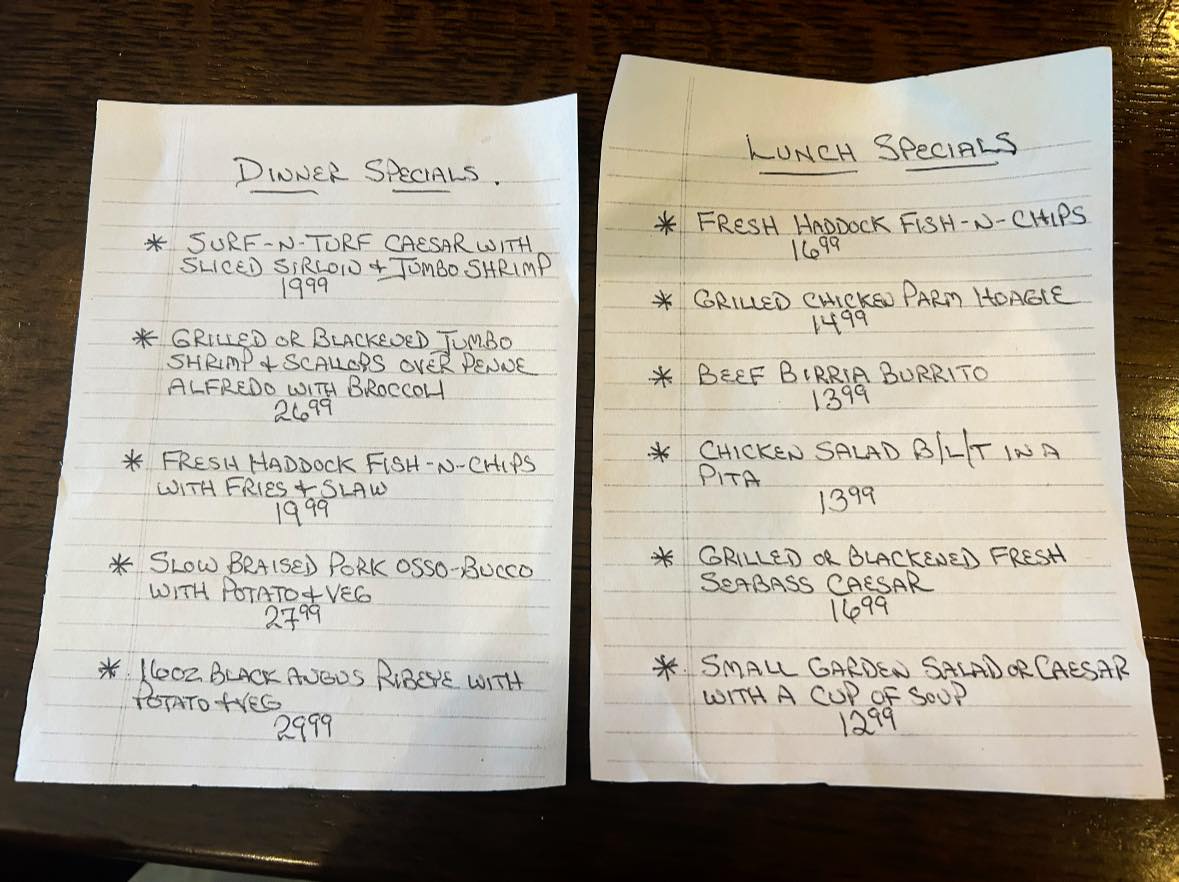 DINNER SPECIALS.
* SURF-N-TURF CAESAR WITH
SLICED SIRLOIN & JUMBO SHRIMP
19.99
* GRILLED OR BLACKENED JUMBO
SHRIMP & SCALLOPS OVER PENNE
ALFREDO WITH BROCCOLI
26.99
* FRESH HADDOCK FISH-N-CHIPS
WITH FRIES & SLAW
19.99
* SLOW BRAISED PORK OSSO-BUCCO
WITH POTATO & VEG
27.99
* 16OZ BLACK ANGUS RIBEYE WITH
POTATO & VEG
29.99
LUNCH SPECIALS
* FRESH HADDOCK FISH-N-CHIPS
16.99
* GRILLED CHICKEN PARM HOAGIE
14.99
* BEEF BIRRIA BURRITO
13.99
* CHICKEN SALAD B/L/T IN A
PITA
13.99
* GRILLED OR BLACKENED FRESH
SEABASS CAESAR
16.99
* SMALL GARDEN SALAD OR CAESAR
WITH A CUP OF SOUP
12.99